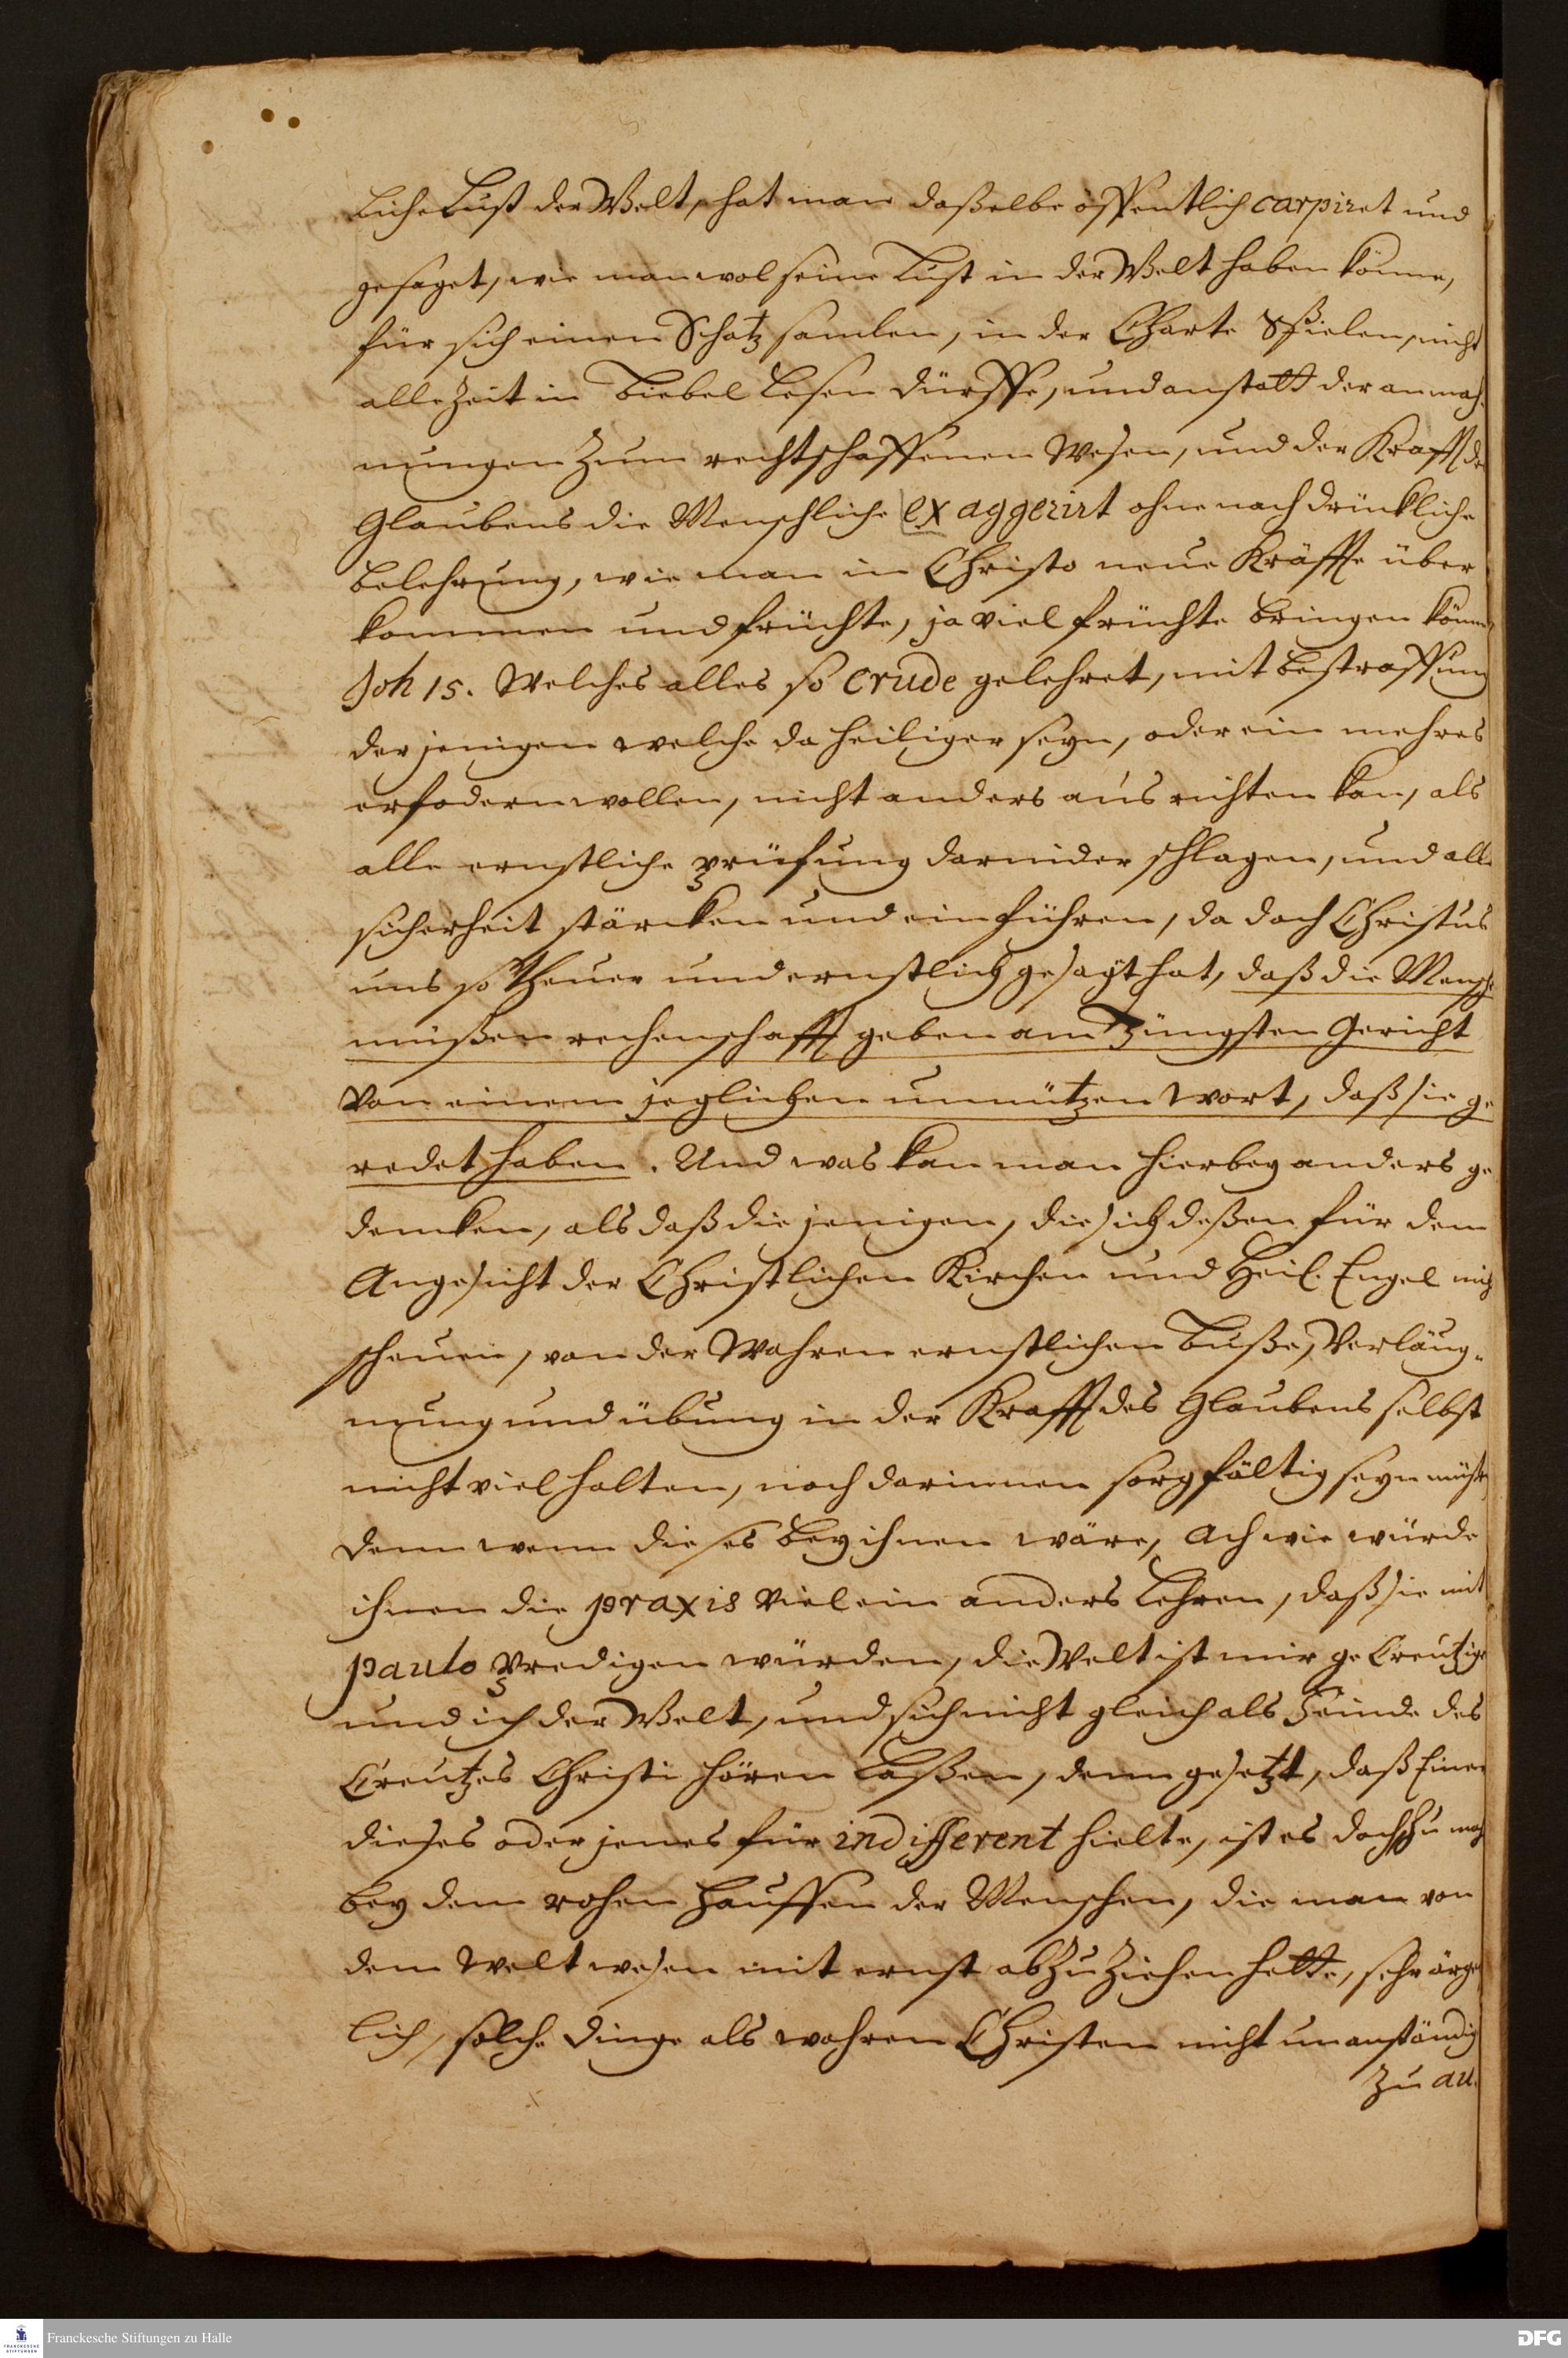 liche Lust der Welt, hat man daßelbe öffentlich carpiret und
gesaget, wie man wol seine Lust in der Welt haben könne,
für sich einen Schatz samlen, in der Charte Spielen, nicht
alle Zeit in Biebel lesen dürffe, und anstatt der anmah-
nungen zum rechtschaffenen Wesen, und der Krafft des
Glaubens die Menschliche exaggerirt ohne nachdrückliche
belehrung, wie man in Christo neue Kräffte über
kommen und früchte, ja viel früchte bringen könne
Joh 15. Welches alles so crude gelehret, mit bestraffung
der jenigen welche da heiliger seyn, oder ein mehres
erfodern wollen, nicht anders ausrichten kan, als
alle ernstliche prüfung darnider schlagen, und alle
sicherheit stärcken und einführen, da doch Christus
uns so theuer und ernstlich gesagt hat, daß die Mensche
müßen rechenschafft geben am Jüngsten Gericht
von einem jeglichen unnützen Wort, daß sie ge
redet haben. Und was kan man hierbey anders ge
dencken, als daß die jenigen, die sich deßen für dem
Angesicht der Christlichen Kirchen und Heil. Engel nicht
scheuen, von der Wahren ernstlichen Buße, Verläug-
nung und übung in der Krafft des Glaubens selbst
nicht viel halten, noch darinnen sorgfältig seyn müsten
denn wenn dieses bey ihnen wäre, ach wie würde
ihnen die praxis viel ein anders Lehren, daß sie mit
paulo predigen würden, die Welt ist mir gecreutziget
und ich der Welt, und sich nicht gleich als Feinde des
Creutzes Christi hören laßen, denn gesetzt, daß Einer
dieses oder jenes für indifferent hielte, ist es doch zu mahl
bey dem rohen Hauffen der Menschen, die man von
dem Weltwesen mit ernst abzuziehen hette, sehr ärger
lich, solche dinge als wahren Christen nicht unanständig
zu au.
Franckesche Stiftungen zu Halle
DFG